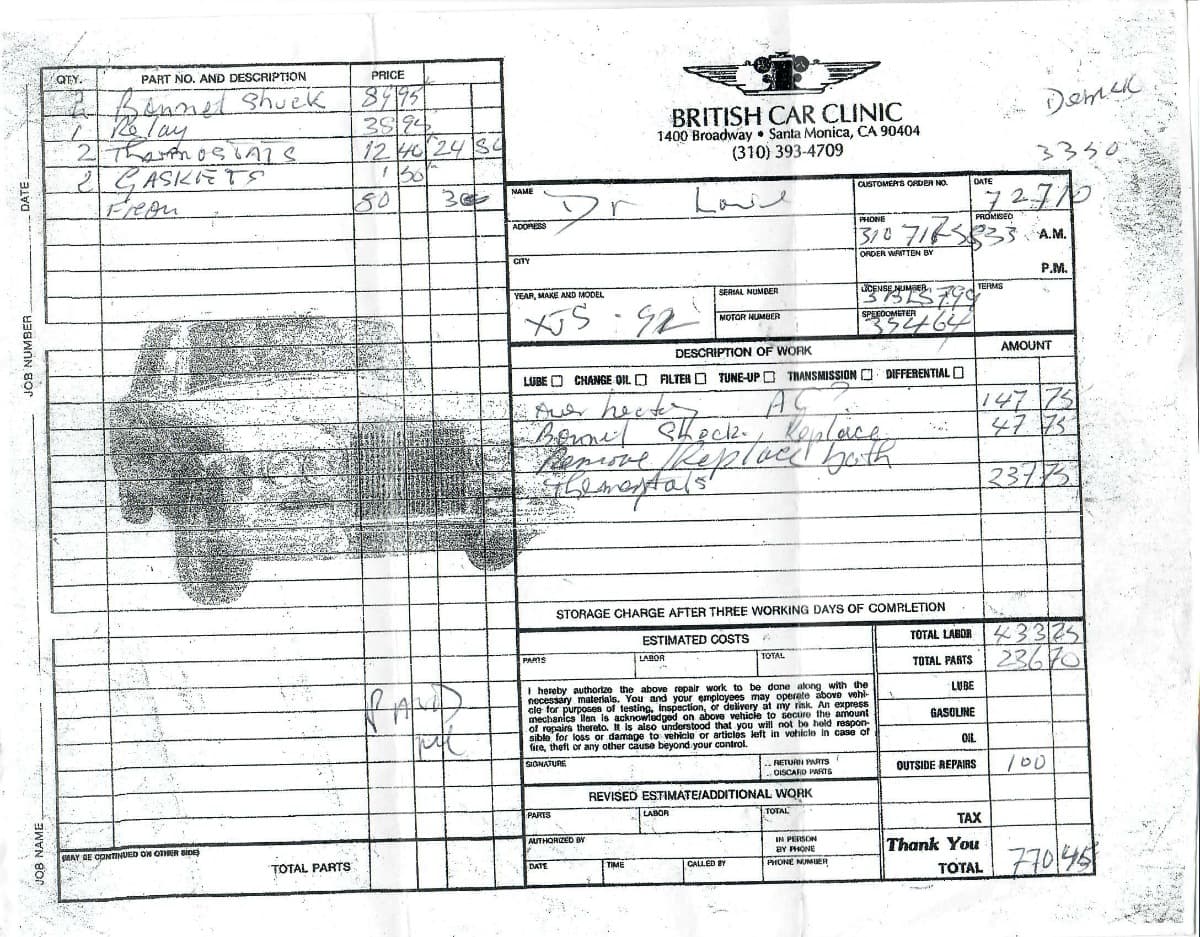 BRITISH CAR CLINIC
1400 Broadway • Santa Monica, CA 90404
(310) 393-4709
3350
QTY. PART NO. AND DESCRIPTION PRICE
2 Bonnet Shuck 8995
1 Relay 3895
2 ThermOSTATS 12 40 24 80
2 GASKETS 1 50
Freon 50
JOB NAME JOB NUMBER DATE
PAID
(MAY BE CONTINUED ON OTHER SIDE)
TOTAL PARTS
NAME Dr
CUSTOMER'S ORDER NO.
DATE 72710
ADDRESS
PHONE 310
PROMISED A.M. P.M.
CITY
ORDER WRITTEN BY
YEAR, MAKE AND MODEL XJS - 92
SERIAL NUMBER
MOTOR NUMBER
LICENSE NUMBER
SPEEDOMETER 35464
TERMS
DESCRIPTION OF WORK AMOUNT
LUBE CHANGE OIL FILTER TUNE-UP TRANSMISSION DIFFERENTIAL
Over heating AC? 147 75
Bonnet Shock. Replace 47 75
Remove / Replace both
237 75
STORAGE CHARGE AFTER THREE WORKING DAYS OF COMPLETION
ESTIMATED COSTS
PARTS LABOR TOTAL
I hereby authorize the above repair work to be done along with the
necessary materials. You and your employees may operate above vehi-
cle for purposes of testing, inspection, or delivery at my risk. An express
mechanics lien is acknowledged on above vehicle to secure the amount
of repairs thereto. It is also understood that you will not be held respon-
sible for loss or damage to vehicle or articles left in vehicle in case of
fire, theft or any other cause beyond your control.
SIGNATURE
RETURN PARTS
DISCARD PARTS
REVISED ESTIMATE/ADDITIONAL WORK
PARTS LABOR TOTAL
AUTHORIZED BY
IN PERSON
BY PHONE
DATE TIME CALLED BY PHONE NUMBER
TOTAL LABOR 433 25
TOTAL PARTS 236 70
LUBE
GASOLINE
OIL
OUTSIDE REPAIRS 100
TAX
Thank You
TOTAL 770 45